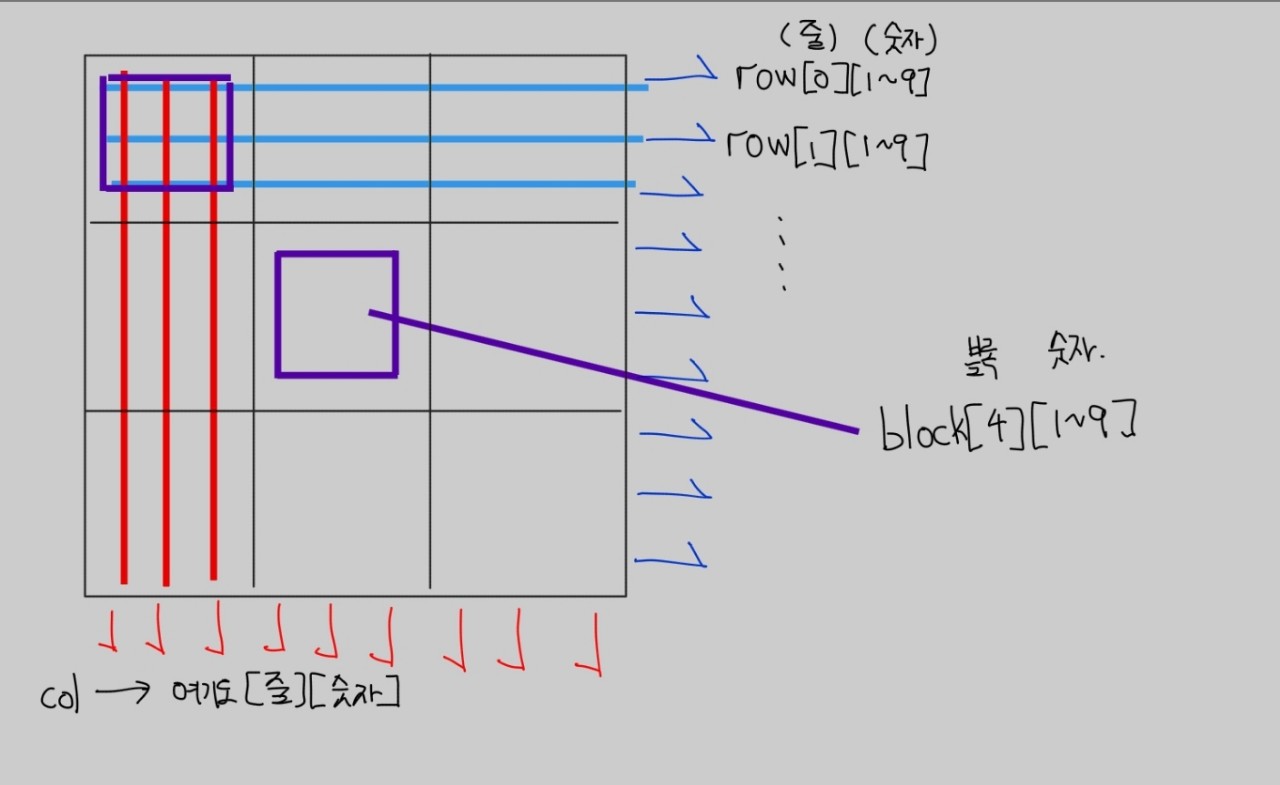 (줄) (숫자)
row[0][1~9]
row[1][1~9]
블록 숫자.
block[4][1~9]
col → 여기도 [줄][숫자]